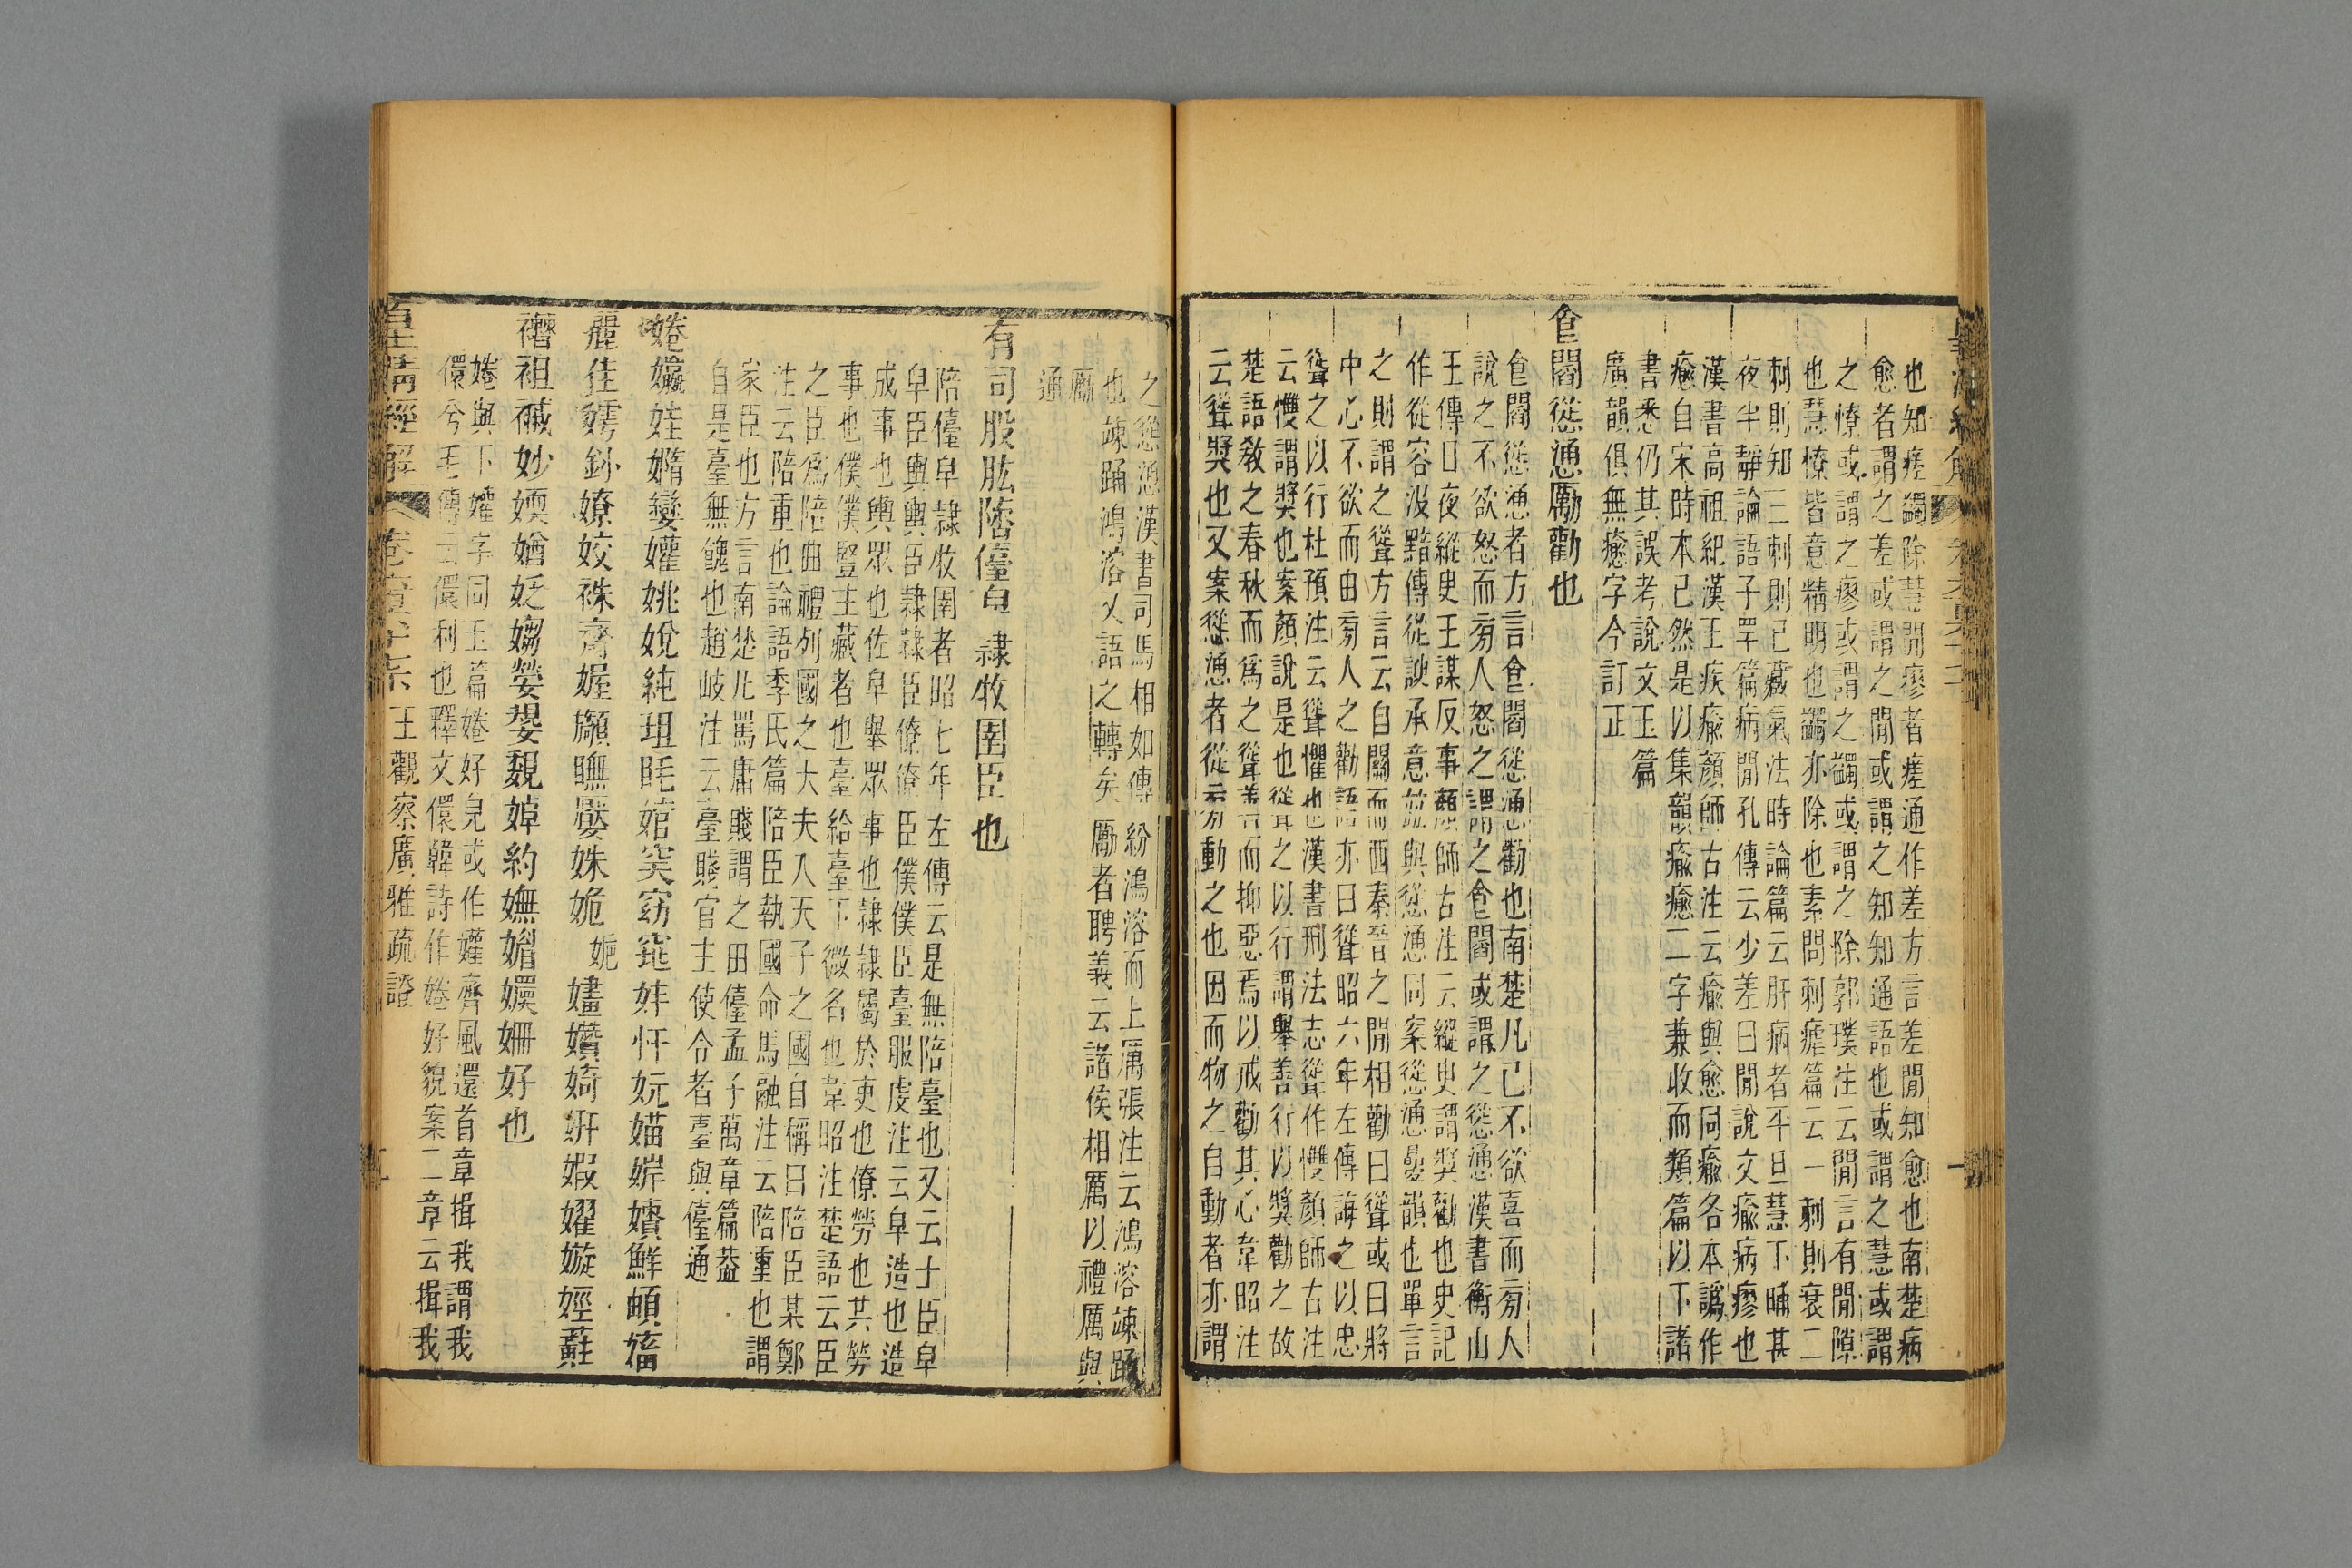 也知瘥蠲除慧閒瘳者瘥通作差方言差閒知愈也南楚病
愈者謂之差或謂之閒或謂之知知通語也或謂之慧或謂
之憭或謂之瘳或謂之蠲或謂之除郭璞注云閒言有閒隙
也慧憭皆意精明也蠲亦除也素問刺瘧篇云一刺則衰二
刺則知三刺則已藏氣法時論篇云肝病者平旦慧下晡甚
夜半靜論語子罕篇病閒孔傳云少差曰閒說文瘉病瘳也
漢書高祖紀漢王疾瘉顏師古注云瘉與愈同瘉各本譌作
癒自宋時本已然是以集韻瘉癒二字兼收而類篇以下諸
書悉仍其誤考說文玉篇
廣韻俱無癒字今訂正
食閻慫慂勵勸也
食閻慫慂者方言食閻慫慂勸也南楚凡己不欲喜而旁人
說之不欲怒而旁人怒之謂之食閻或謂之慫慂漢書衡山
王傳日夜縱臾王謀反事顏師古注云縱臾謂獎勸也史記
作從容汲黯傳從諛承意竝與慫慂同案慫慂疊韻也單言
之則謂之聳方言云自關而西秦晉之閒相勸曰聳或曰將
中心不欲而由旁人之勸語亦曰聳昭六年左傳誨之以忠
聳之以行杜預注云聳懼也漢書刑法志聳作㩳顏師古注
云㩳謂獎也案顏說是也聳之以行謂舉善行以獎勸之故
楚語教之春秋而爲之聳善而抑惡焉以戒勸其心韋昭注
云聳獎也又案慫慂者從旁動之也因而物之自動者亦謂
之慫慂漢書司馬相如傳紛鴻溶而上厲張注云鴻溶竦踊
也竦踊鴻溶又語之轉矣勵者聘義云諸侯相厲以禮厲與
勵
通
有司股肱陪儓皁隸牧圉臣也
陪儓皁隸牧圉者昭七年左傳云是無陪臺也又云士臣皁
皁臣輿輿臣隸隸臣僚僚臣僕僕臣臺服虔注云皁造也造
成事也輿眾也佐皁舉眾事也隸隸屬於吏也僚勞也共勞
事也僕僕豎主藏者也臺給臺下微名也韋昭注楚語云臣
之臣爲陪曲禮列國之大夫入天子之國自稱曰陪臣某鄭
注云陪重也論語季氏篇陪臣執國命馬融注云陪重也謂
家臣也方言南楚凡罵庸賤謂之田儓孟子萬章篇葢
自是臺無餽也趙岐注云臺賤官主使令者臺與儓通
婘孃娃嫷孌嬽姚娧純珇眊婠窔窈窕姅忓妧媌嫷嬪鮮頔㜅
麗佳嫮釥嫽姣袾齊媉㜵瞴嬮姝姽婗嫿㜺婍姸婽嬥嫙娙蘳
禮祖祴妙媆媨妶㛀嫈媞覣婥約嫵媚嬽姍好也
婘與下嬽字同玉篇婘好皃或作嬽齊風還首章揖我謂我
儇兮毛傳云儇利也釋文儇韓詩作婘好貌案二章云揖我
皇清經解 卷 王觀察廣雅疏證